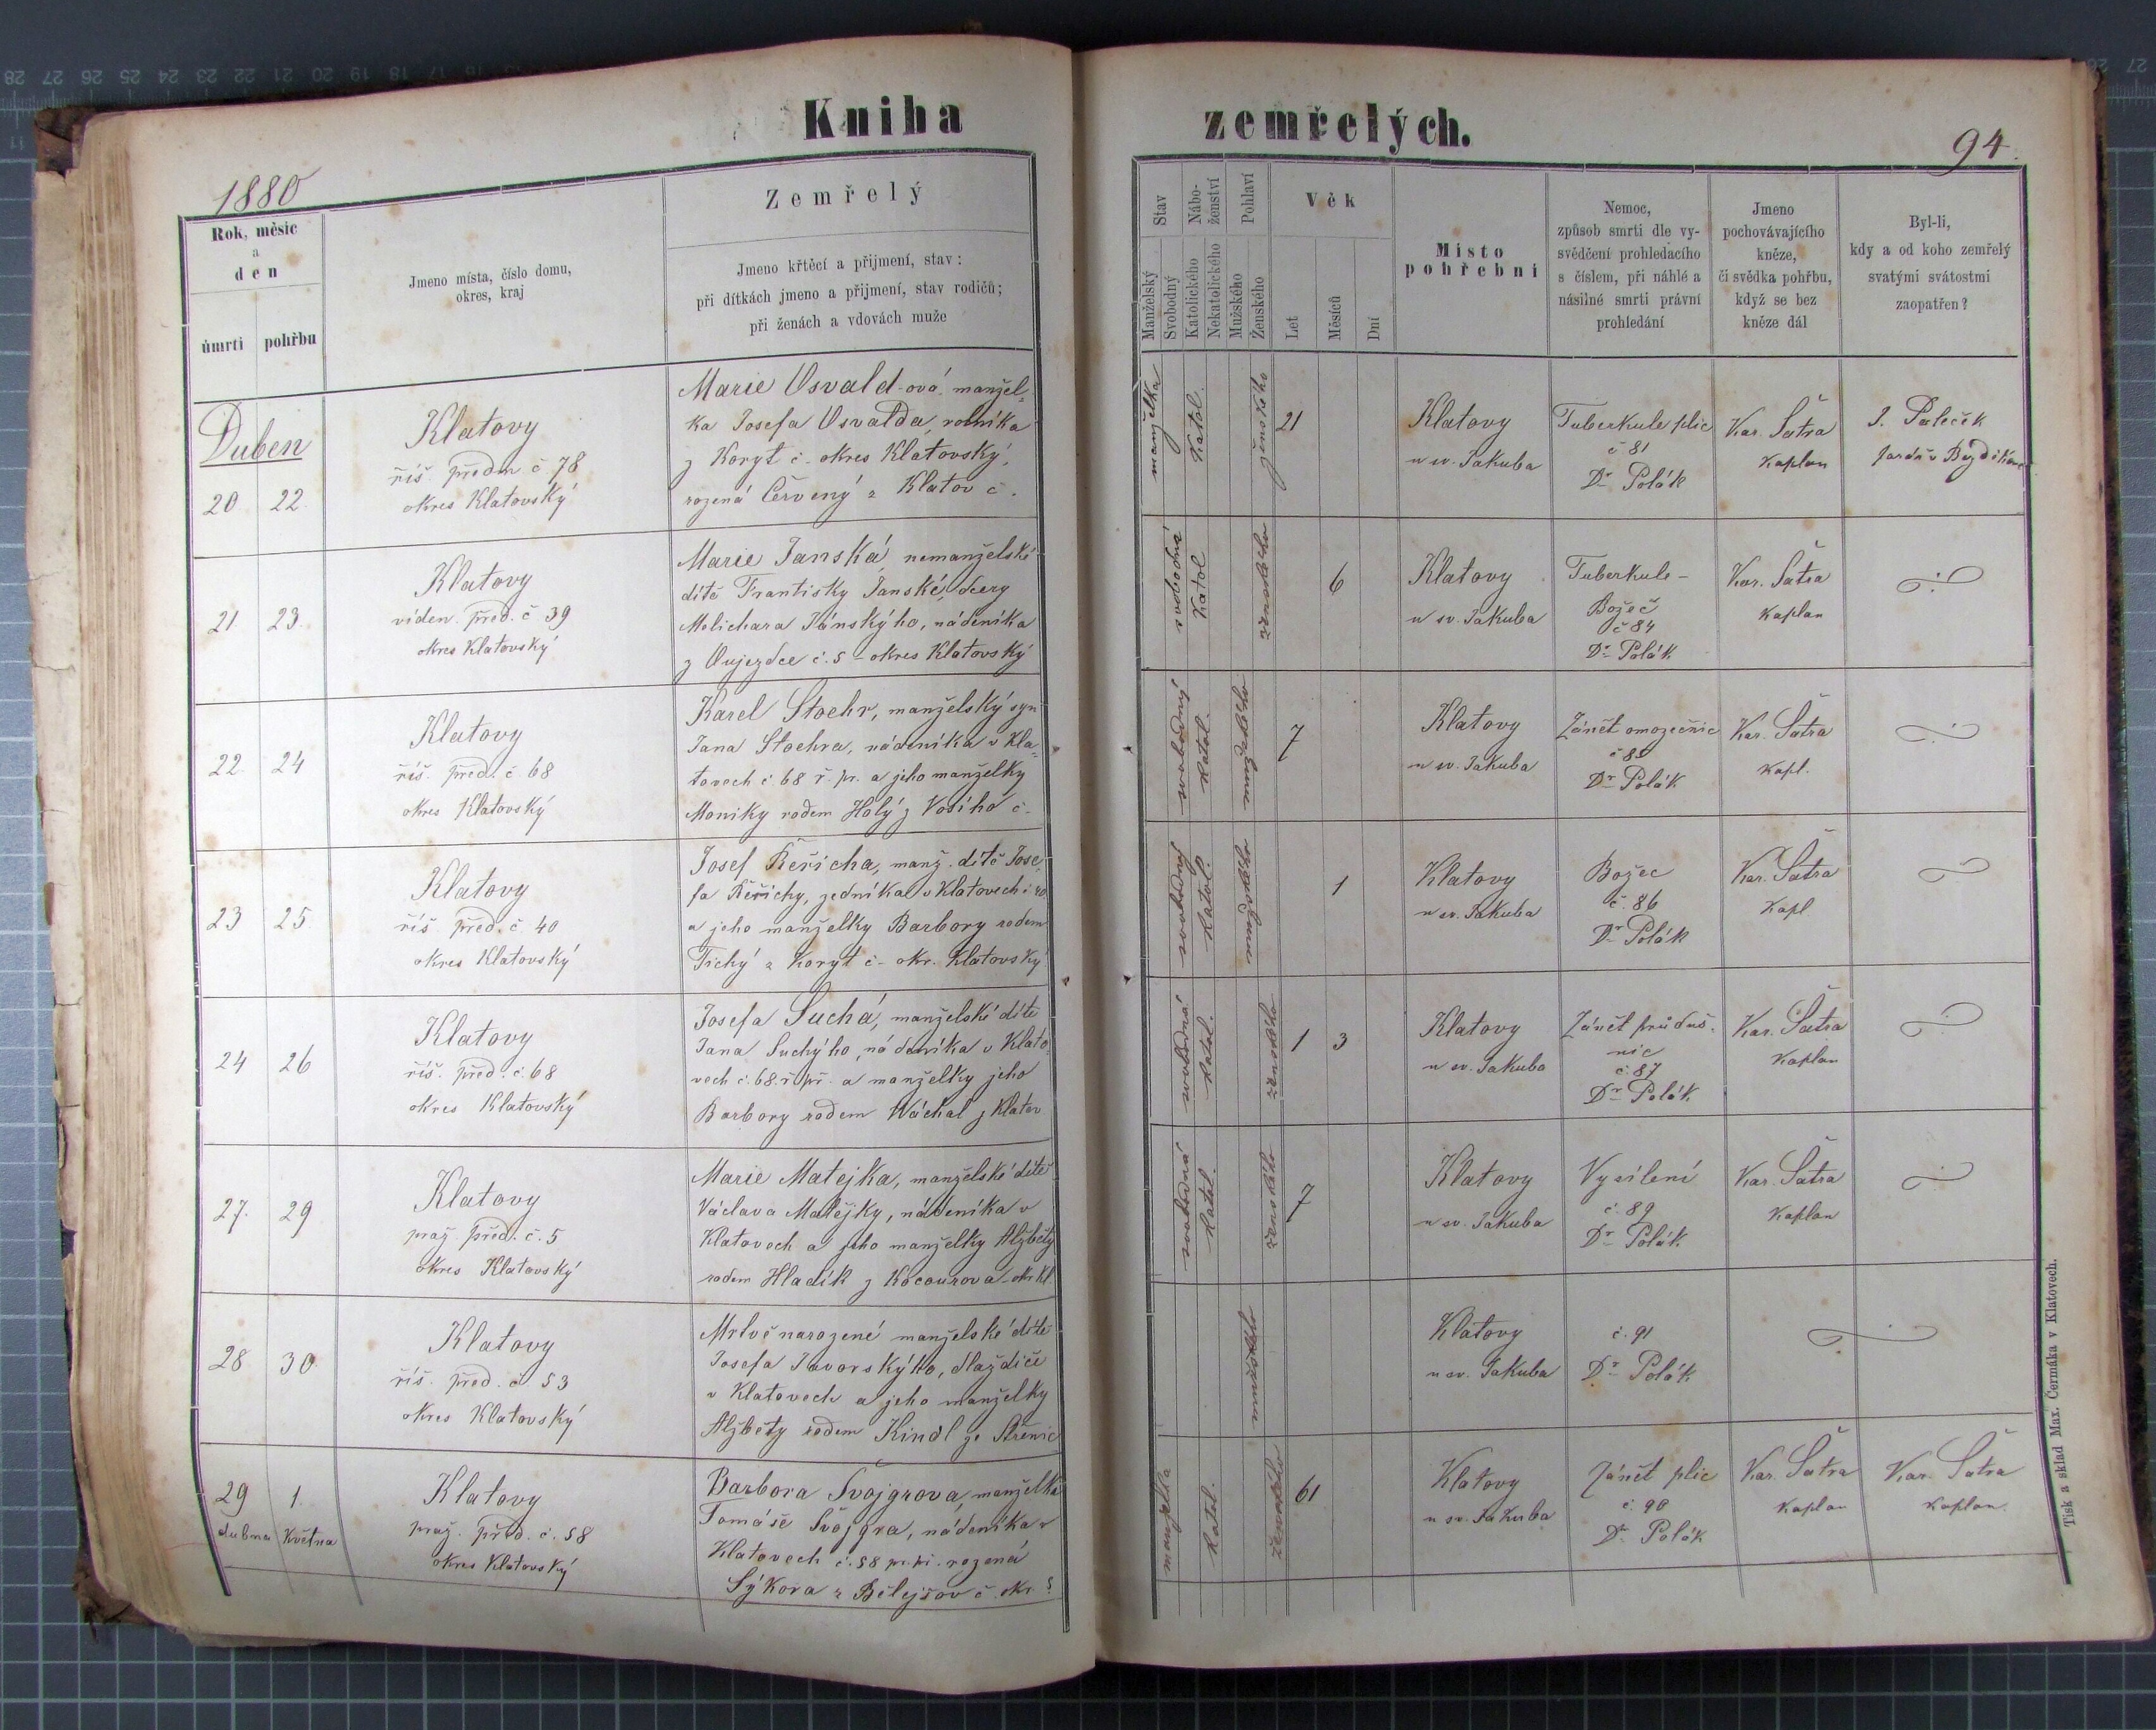 Kniha zemřelých.
94.
1880
Rok, měsíc
a
den
úmrtí
pohřbu
Jmeno místa, číslo domu,
okres, kraj
Zemřelý
Jmeno křtěcí a přijmení, stav:
při dítkách jmeno a přijmení, stav rodičů;
při ženách a vdovách muže
Stav
Manželský
Svobodný
Nábo-
ženství
Katolického
Nekatolického
Pohlaví
Mužského
Ženského
Věk
Let
Měsíců
Dní
Místo
pohřební
Nemoc,
způsob smrti dle vy-
svědčení prohledacího
s číslem, při náhlé a
násilné smrti právní
prohledání
Jmeno
pochovávajícího
kněze,
či svědka pohřbu,
když se bez
kněze dál
Byl-li,
kdy a od koho zemřelý
svatými svátostmi
zaopatřen?
Duben
20
22
Klatovy
říš. předm č 78
okres Klatovský
Marie Osvald-ová manžel-
ka Josefa Osvalda, rolníka
z Koryt č - okres Klatovský,
rozená Červený z Klatov č.
manželka
Katol.
ženského
21
Klatovy
u sv. Jakuba
Tuberkule plic
č 81
Dr Polák
Kar. Šatra
Kaplan
J. Paleček
21
23.
Klatovy
víden. před. č 39
okres Klatovský
Marie Janská, nemanželské
dítě Františky Janské, dcery
Melichara Jánského, nádeníka
z Oujezdce č. 5 - okres Klatovský
svobodná
Katol
ženského
6
Klatovy
u sv. Jakuba
Tuberkule -
Božec
č 84
Dr Polák
Kar. Šatra
Kaplan
22.
24
Klatovy
říš. před. č 68
okres Klatovský
Karel Stoehr, manželský syn
Jana Stoehra, nádeníka v Kla-
tovech č. 68 ř. př. a jeho manželky
Moniky rodem Holý z Vosího č -
svobodný
Katol.
mužského
7
Klatovy
u sv. Jakuba
Zánět omozečnic
č 85
Dr Polák
Kar. Šatra
Kapl.
23
25.
Klatovy
říš před. č. 40
okres Klatovský
Josef Řeřicha, manž. dítě Jose-
fa Řeřichy, zedníka v Klatovech č 40
a jeho manželky Barbory rodem
Tichý z Koryt č - okr. Klatovský
svobodný
Katol.
mužského
1
Klatovy
u sv. Jakuba
Božec
č. 86
Dr Polák
Kar. Šatra
Kapl
24
26
Klatovy
říš. před. č. 68
okres Klatovský
Josefa Suchá, manželské dítě
Jana Suchýho, nádeníka v Klato-
vech č. 68. ř. př. a manželky jeho
Barbory rodem Wáchal z Klatov
svobodná
Katol.
ženského
1
3
Klatovy
u sv. Jakuba
Zánět průduš-
nic
č. 87
Dr Polák
Kar. Šatra
Kaplan
27.
29
Klatovy
praž. před. č. 5
okres Klatovský
Marie Matejka, manželské dítě
Václava Matějky, nádeníka v
Klatovech a jeho manželky Alžběty
rodem Hladík z Kocourova okr Kl.
svobodná
Katol.
ženského
7
Klatovy
u sv. Jakuba
Vysílení
č. 89
Dr Polák
Kar. Šatra
Kaplan
28
30.
Klatovy
říš. před. č. 53
okres Klatovský
Mrtvě narozené manželské dítě
Josefa Javorskýho, dlaždiče
v Klatovech a jeho manželky
Alžběty rodem Kindl ze Střenic
mužského
Klatovy
u sv. Jakuba
č. 91
Dr Polák
29
dubna
1.
Května
Klatovy
praž. před. č. 58
okres Klatovský
Barbora Švojgrova, manželka
Tomáše Švojgra, nádeníka v
Klatovech č. 58 pr. př. rozená
Sýkora z Bělejšov č. okr. S
manželka
Katol.
ženského
61
Klatovy
u sv. Jakuba
Zánět plic
č. 90
Dr Polák
Kar. Šatra
Kaplan
Kar. Šatra
Kaplan
Tisk a sklad Max. Čermáka v Klatovech.